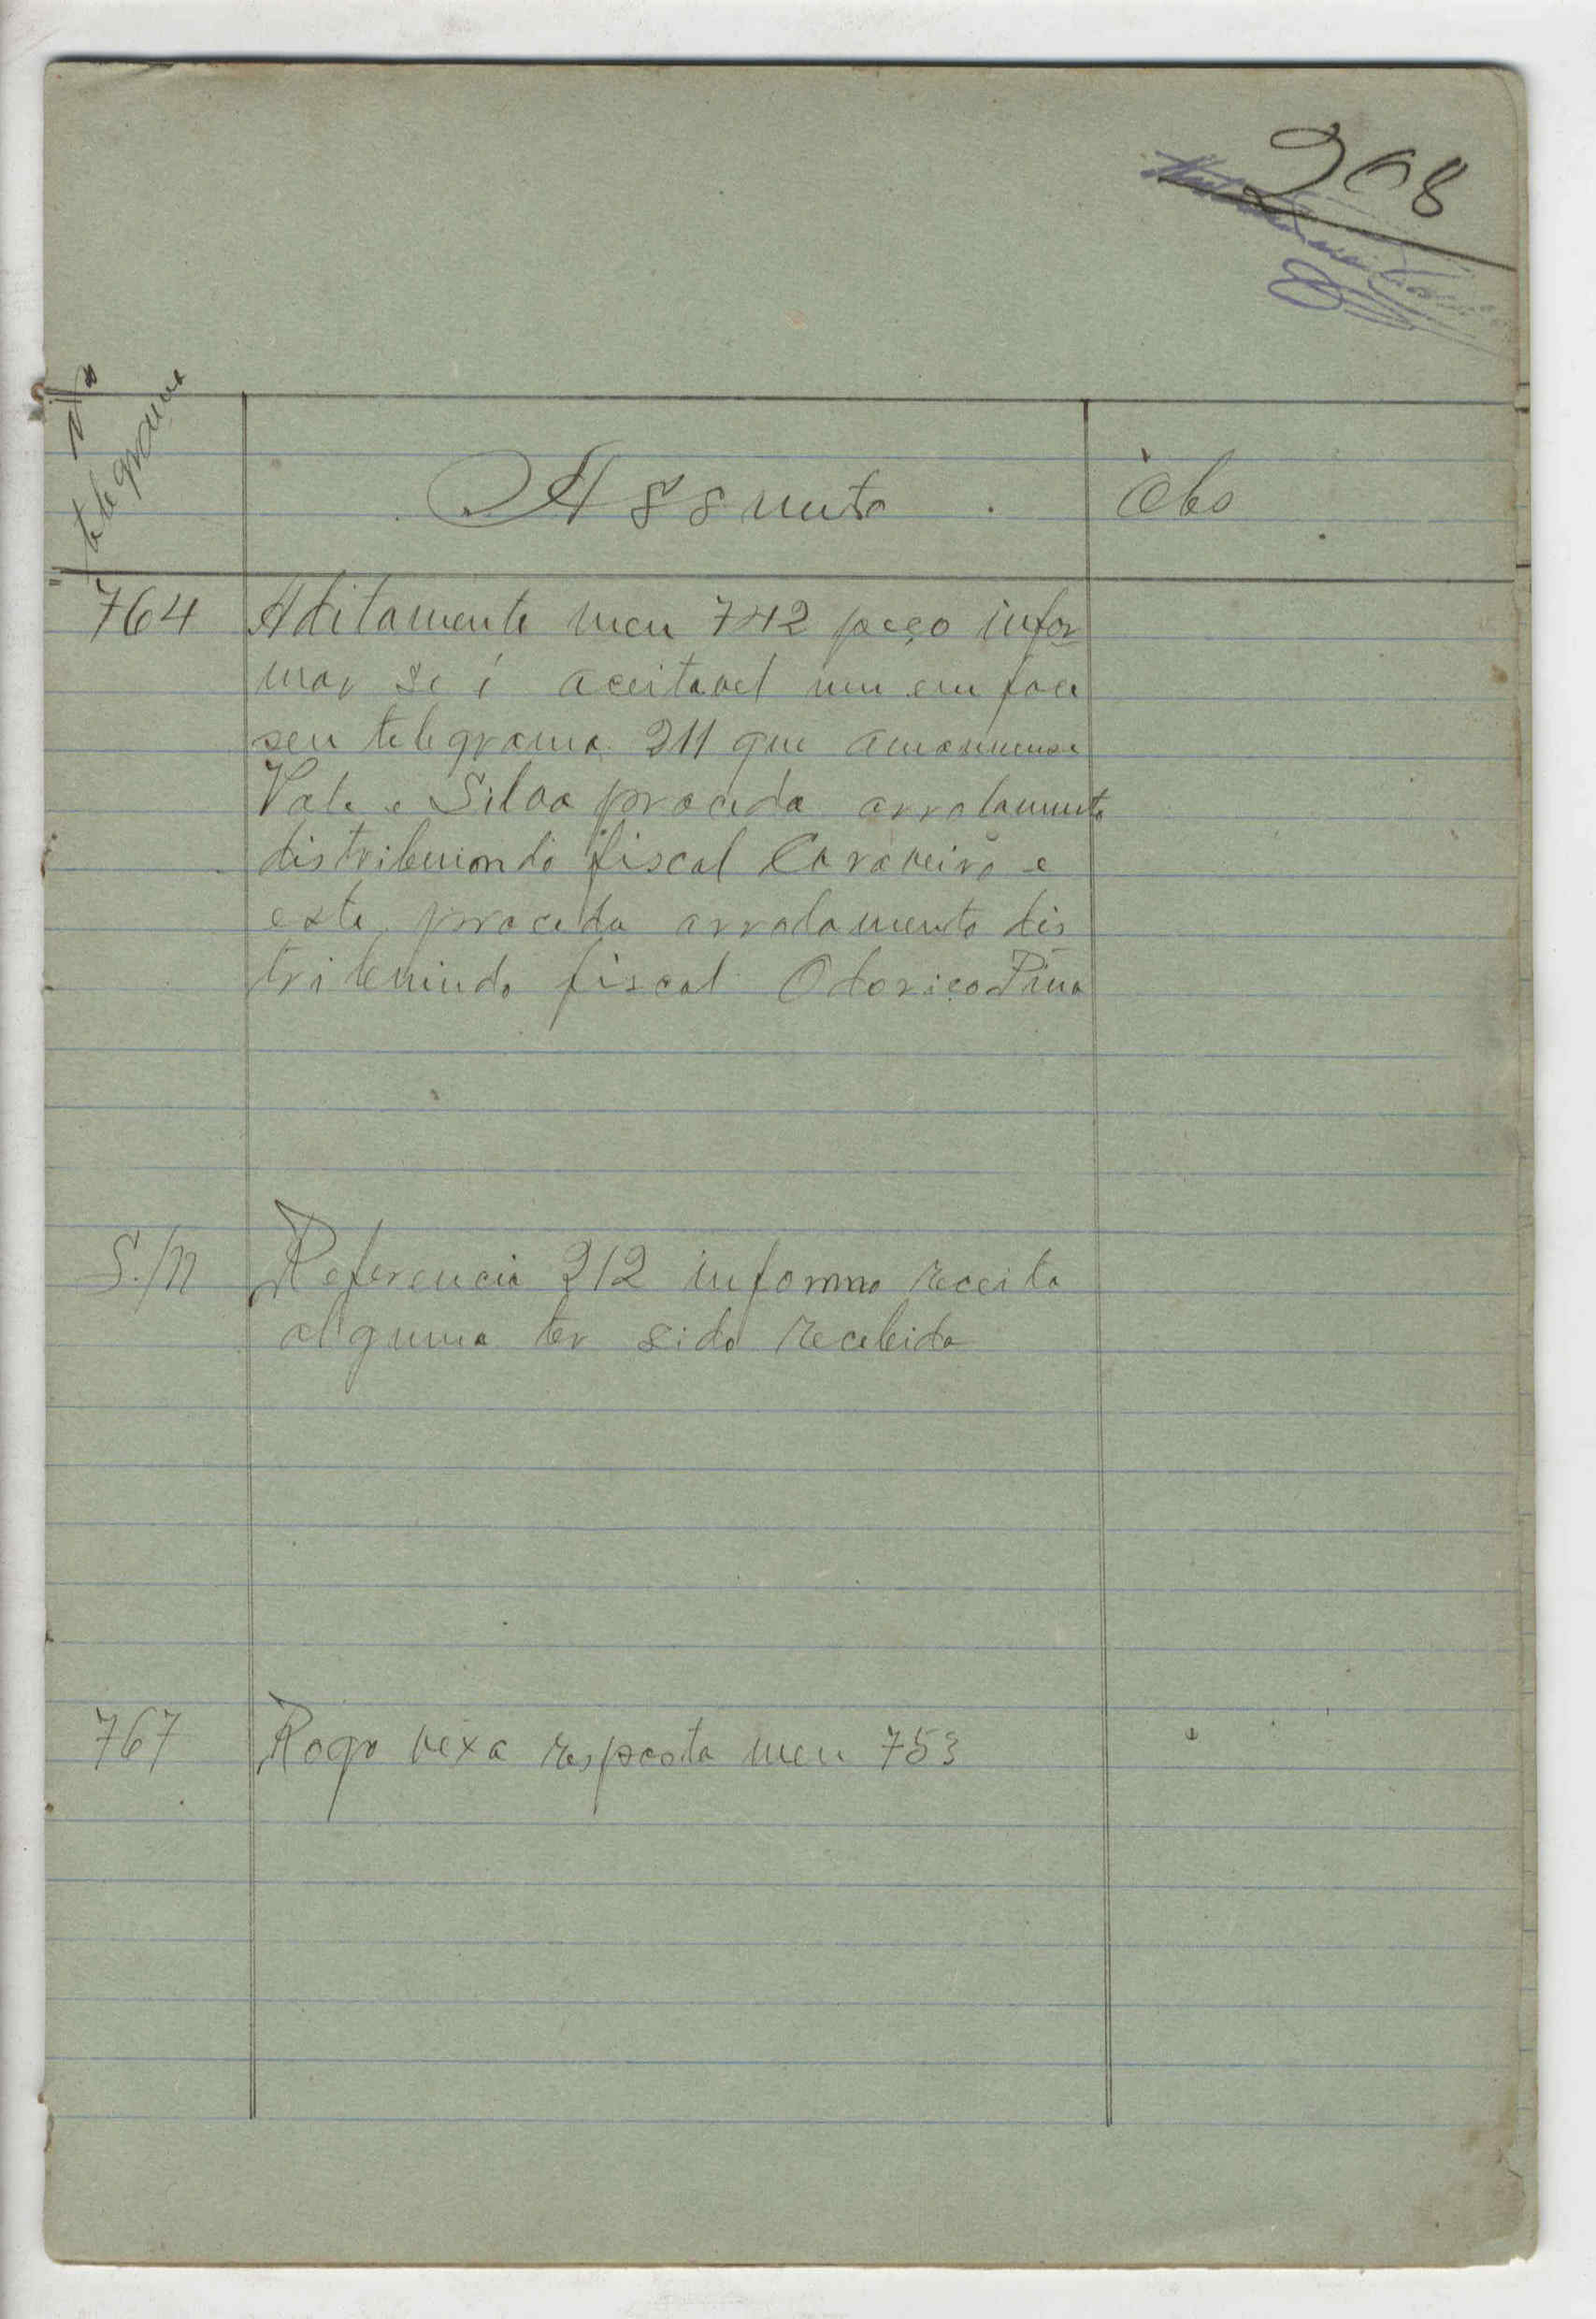 208
Nº
telegrama
Assunto
Obs
764
Aditamento meu 742 peço infor
mar se é aceitavel um em face
seu telegrama 211 que amanuense
Vale e Silva proceda arrolamento
distribuindo fiscal Caraveiro e
este proceda arrolamento dis
tribuindo fiscal Odorico Pina
S./N
Referencia 212 informo receita
alguma ter sido recebida
767
Rogo vexa resposta meu 753